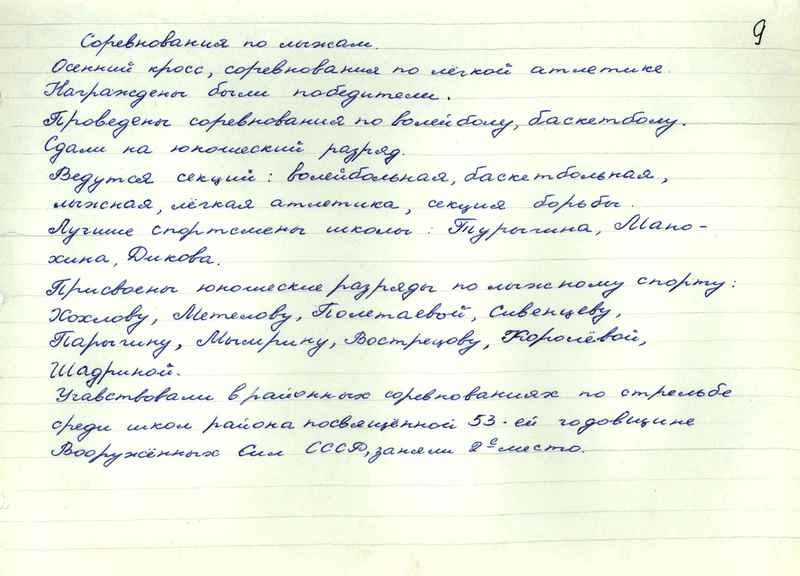 9
Соревнования по лыжам.
Осенний кросс, соревнования по лёгкой атлетике.
Награждены были победители.
Проведены соревнования по волейболу, баскетболу.
Сдали на юношеский разряд.
Ведутся секций: волейбольная, баскетбольная,
лыжная, лёгкая атлетика, секция борьбы.
Лучшие спортсмены школы: Турыгина, Мано-
хина, Дикова.
Присвоены юношеские разряды по лыжному спорту:
Хохлову, Метелову, Полетаевой, Сивенцеву,
Парыгину, Мымрину, Вострецову, Королёвой,
Шадриной.
Учавствовали в районных соревнованиях по стрельбе
среди школ района посвящённой 53-ей годовщине
Вооружённых Сил СССР, заняли 2е место.